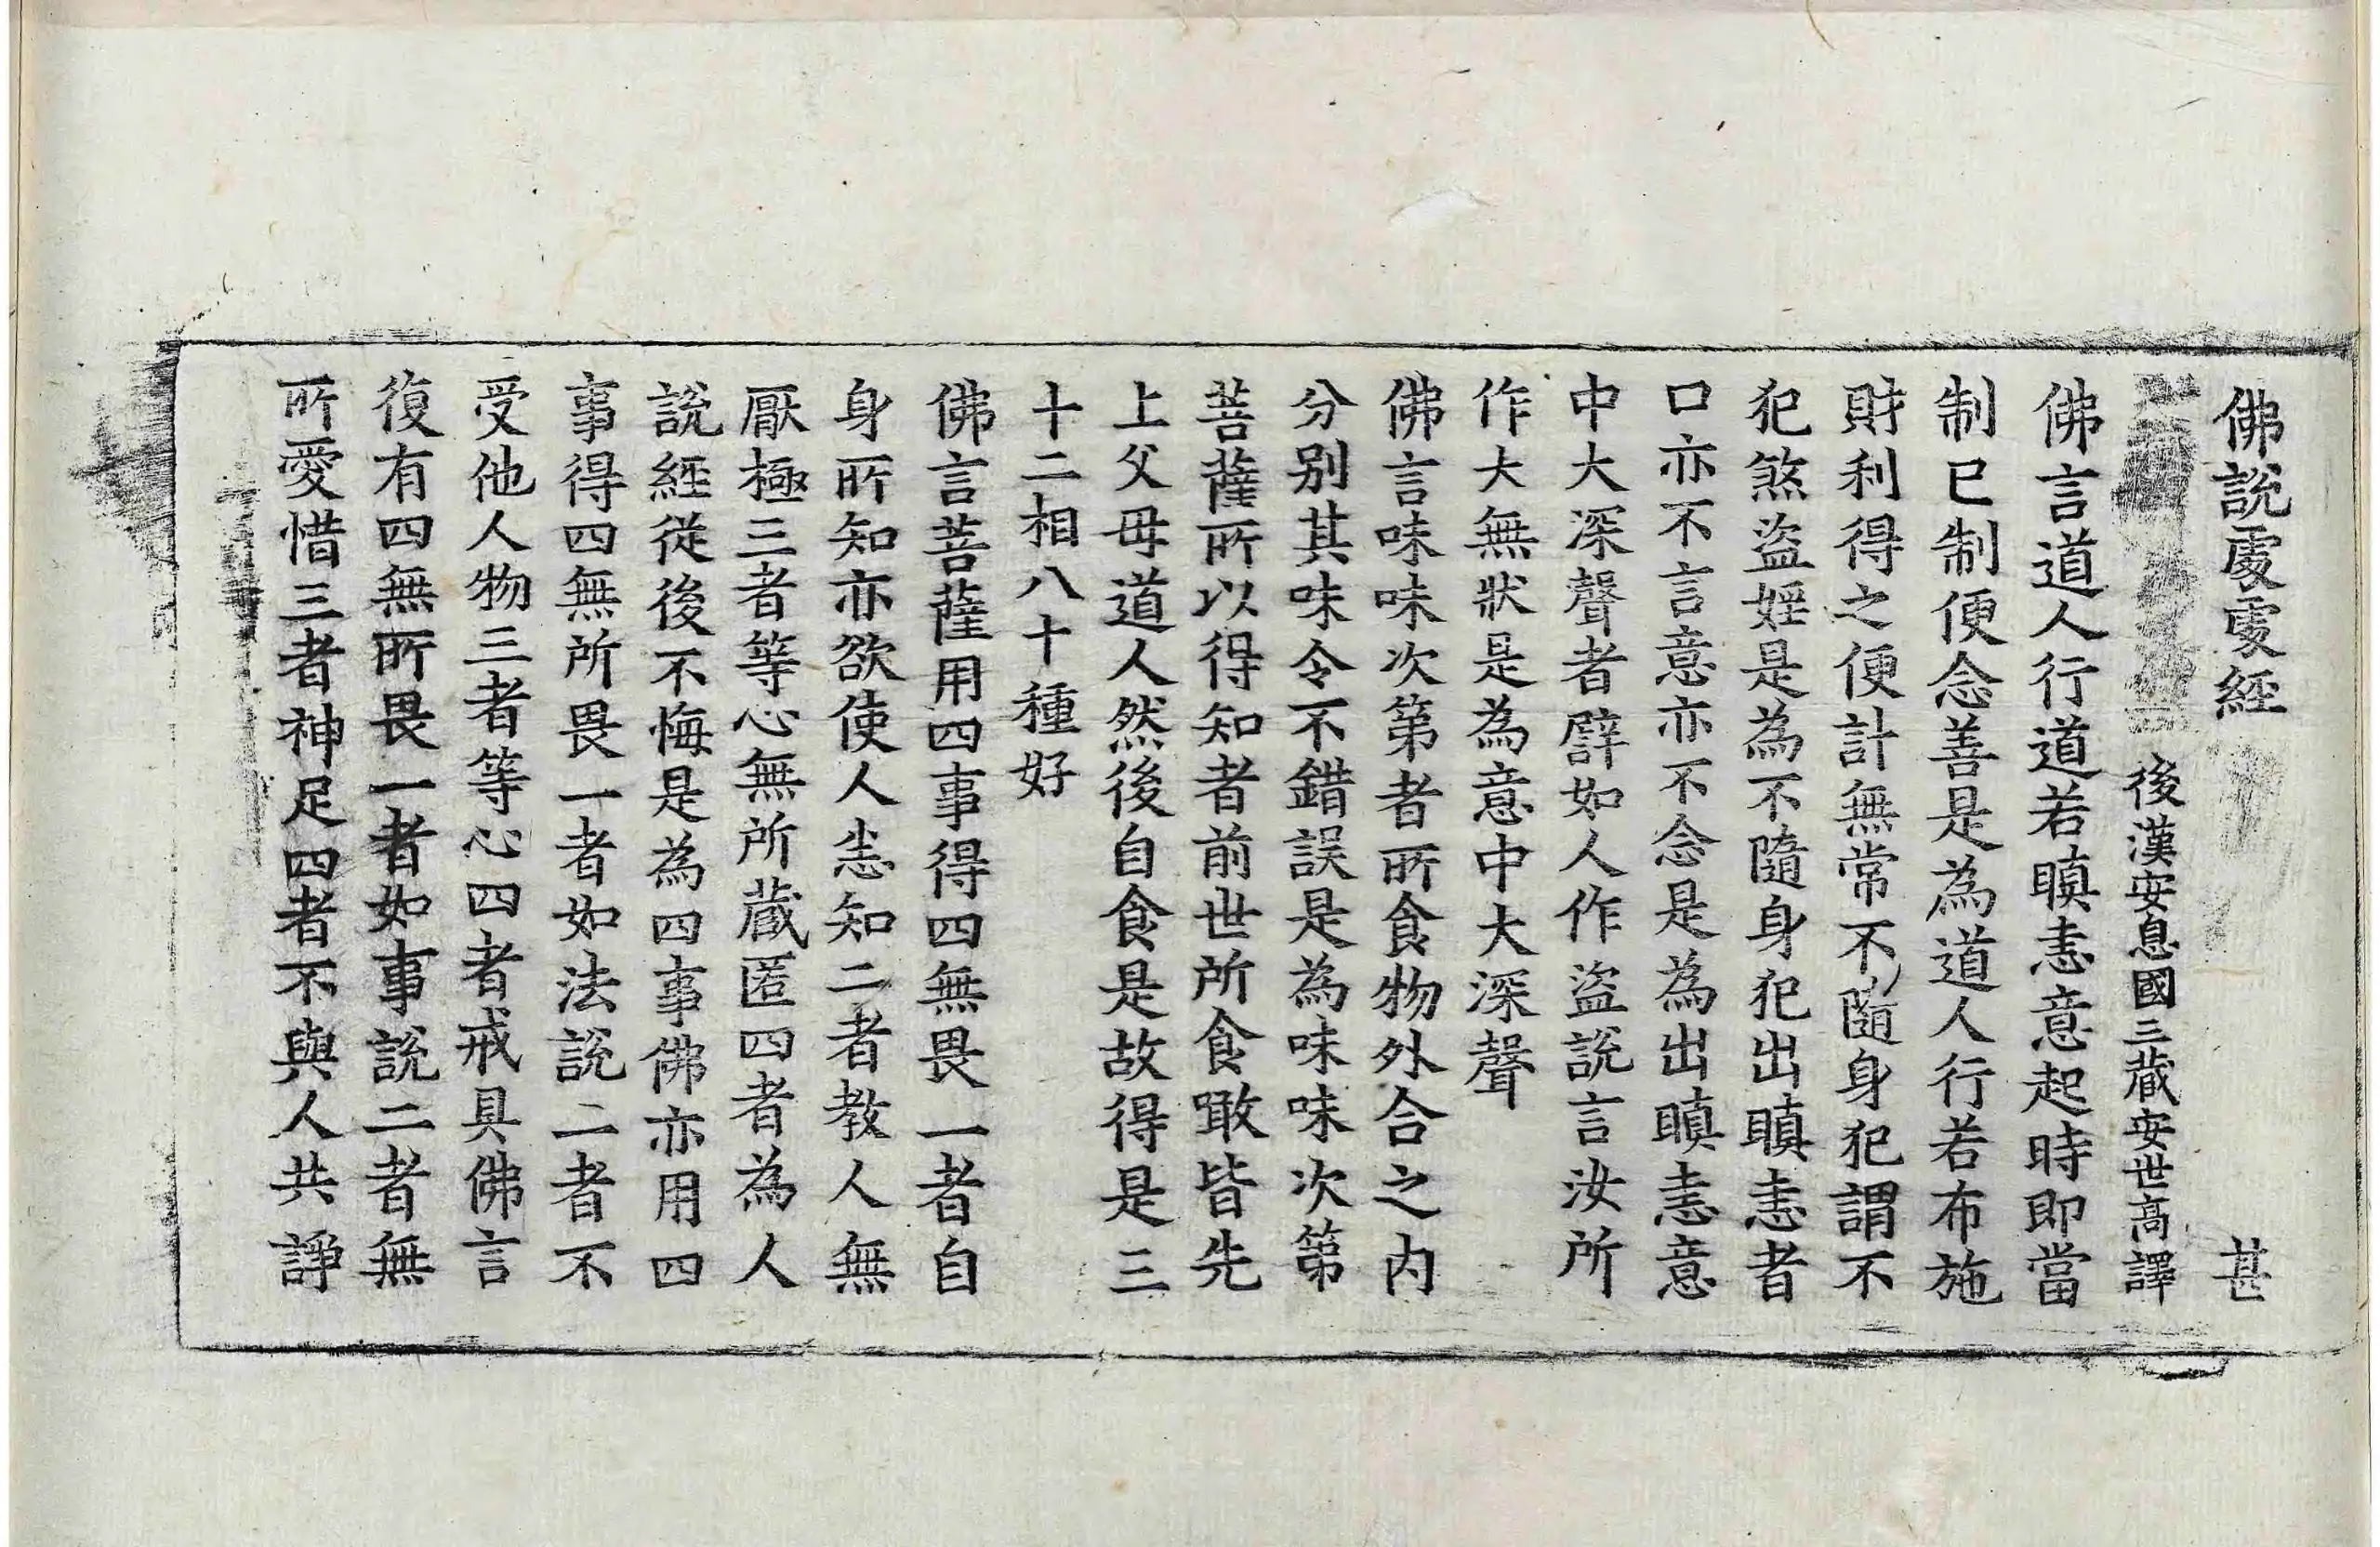 佛說處處經 甚
後漢安息國三藏安世高譯
佛言道人行道若瞋恚意起時即當
制已制便念善是為道人行若布施
財利得之便計無常不隨身犯謂不
犯煞盜婬是為不隨身犯出瞋恚者
口亦不言意亦不念是為出瞋恚意
中大深聲者譬如人作盜說言汝所
作大無狀是為意中大深聲
佛言味味次第者所食物外合之內
分別其味令不錯誤是為味味次第
菩薩所以得知者前世所食噉皆先
上父母道人然後自食是故得是三
十二相八十種好
佛言菩薩用四事得四無畏一者自
身所知亦欲使人悉知二者教人無
厭極三者等心無所藏匿四者為人
說經從後不悔是為四事佛亦用四
事得四無所畏一者如法說二者不
受他人物三者等心四者戒具佛言
復有四無所畏一者如事說二者無
所愛惜三者神足四者不與人共諍